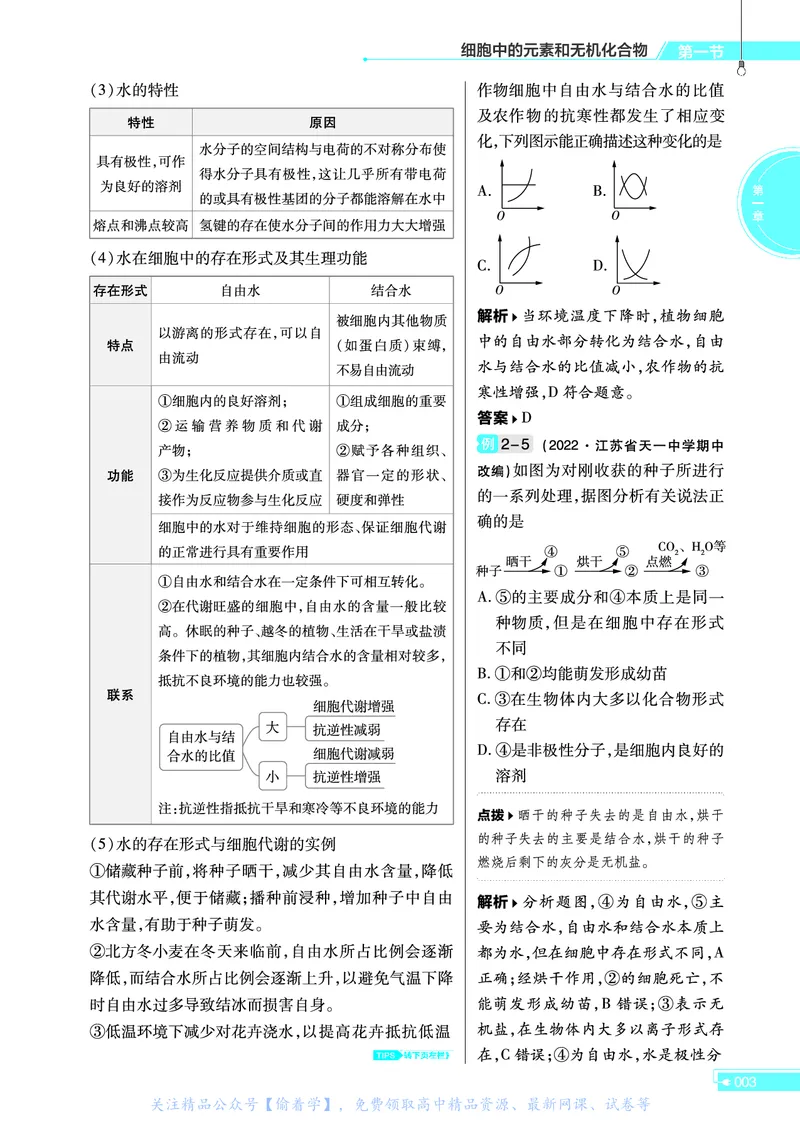 细胞中的元素和无机化合物 第一节
(3)水的特性
特性 原因
具有极性,可作
为良好的溶剂
水分子的空间结构与电荷的不对称分布使
得水分子具有极性,这让几乎所有带电荷
的或具有极性基团的分子都能溶解在水中
熔点和沸点较高 氢键的存在使水分子间的作用力大大增强
(4)水在细胞中的存在形式及其生理功能
存在形式 自由水 结合水
特点
以游离的形式存在,可以自
由流动
被细胞内其他物质
(如蛋白质)束缚,
不易自由流动
功能
①细胞内的良好溶剂;
②运输营养物质和代谢
产物;
③为生化反应提供介质或直
接作为反应物参与生化反应
①组成细胞的重要
成分;
②赋予各种组织、
器官一定的形状、
硬度和弹性
细胞中的水对于维持细胞的形态、保证细胞代谢
的正常进行具有重要作用
联系
①自由水和结合水在一定条件下可相互转化。
②在代谢旺盛的细胞中,自由水的含量一般比较
高。休眠的种子、越冬的植物、生活在干旱或盐渍
条件下的植物,其细胞内结合水的含量相对较多,
抵抗不良环境的能力也较强。
自由水与结
合水的比值
大
细胞代谢增强
抗逆性减弱
小
细胞代谢减弱
抗逆性增强
注:抗逆性指抵抗干旱和寒冷等不良环境的能力
(5)水的存在形式与细胞代谢的实例
①储藏种子前,将种子晒干,减少其自由水含量,降低
其代谢水平,便于储藏;播种前浸种,增加种子中自由
水含量,有助于种子萌发。
②北方冬小麦在冬天来临前,自由水所占比例会逐渐
降低,而结合水所占比例会逐渐上升,以避免气温下降
时自由水过多导致结冰而损害自身。
③低温环境下减少对花卉浇水,以提高花卉抵抗低温
TIPS 转下页左栏
作物细胞中自由水与结合水的比值
及农作物的抗寒性都发生了相应变
化,下列图示能正确描述这种变化的是
A. O B. O
C. O D. O
解析 当环境温度下降时,植物细胞
中的自由水部分转化为结合水,自由
水与结合水的比值减小,农作物的抗
寒性增强,D符合题意。
答案 D
例 2-5 (2022·江苏省天一中学期中
改编)如图为对刚收获的种子所进行
的一系列处理,据图分析有关说法正
确的是
种子 晒干 ④ ① 烘干 ⑤ ② 点燃 CO₂、H₂O等 ③
A. ⑤的主要成分和④本质上是同一
种物质,但是在细胞中存在形式
不同
B. ①和②均能萌发形成幼苗
C. ③在生物体内大多以化合物形式
存在
D. ④是非极性分子,是细胞内良好的
溶剂
点拨 晒干的种子失去的是自由水,烘干
的种子失去的主要是结合水,烘干的种子
燃烧后剩下的灰分是无机盐。
解析 分析题图,④为自由水,⑤主
要为结合水,自由水和结合水本质上
都为水,但在细胞中存在形式不同,A
正确;经烘干作用,②的细胞死亡,不
能萌发形成幼苗,B错误;③表示无
机盐,在生物体内大多以离子形式存
在,C错误;④为自由水,水是极性分
第一章
003
关注精品公众号【偷着学】,免费领取高中精品资源、最新网课、试卷等